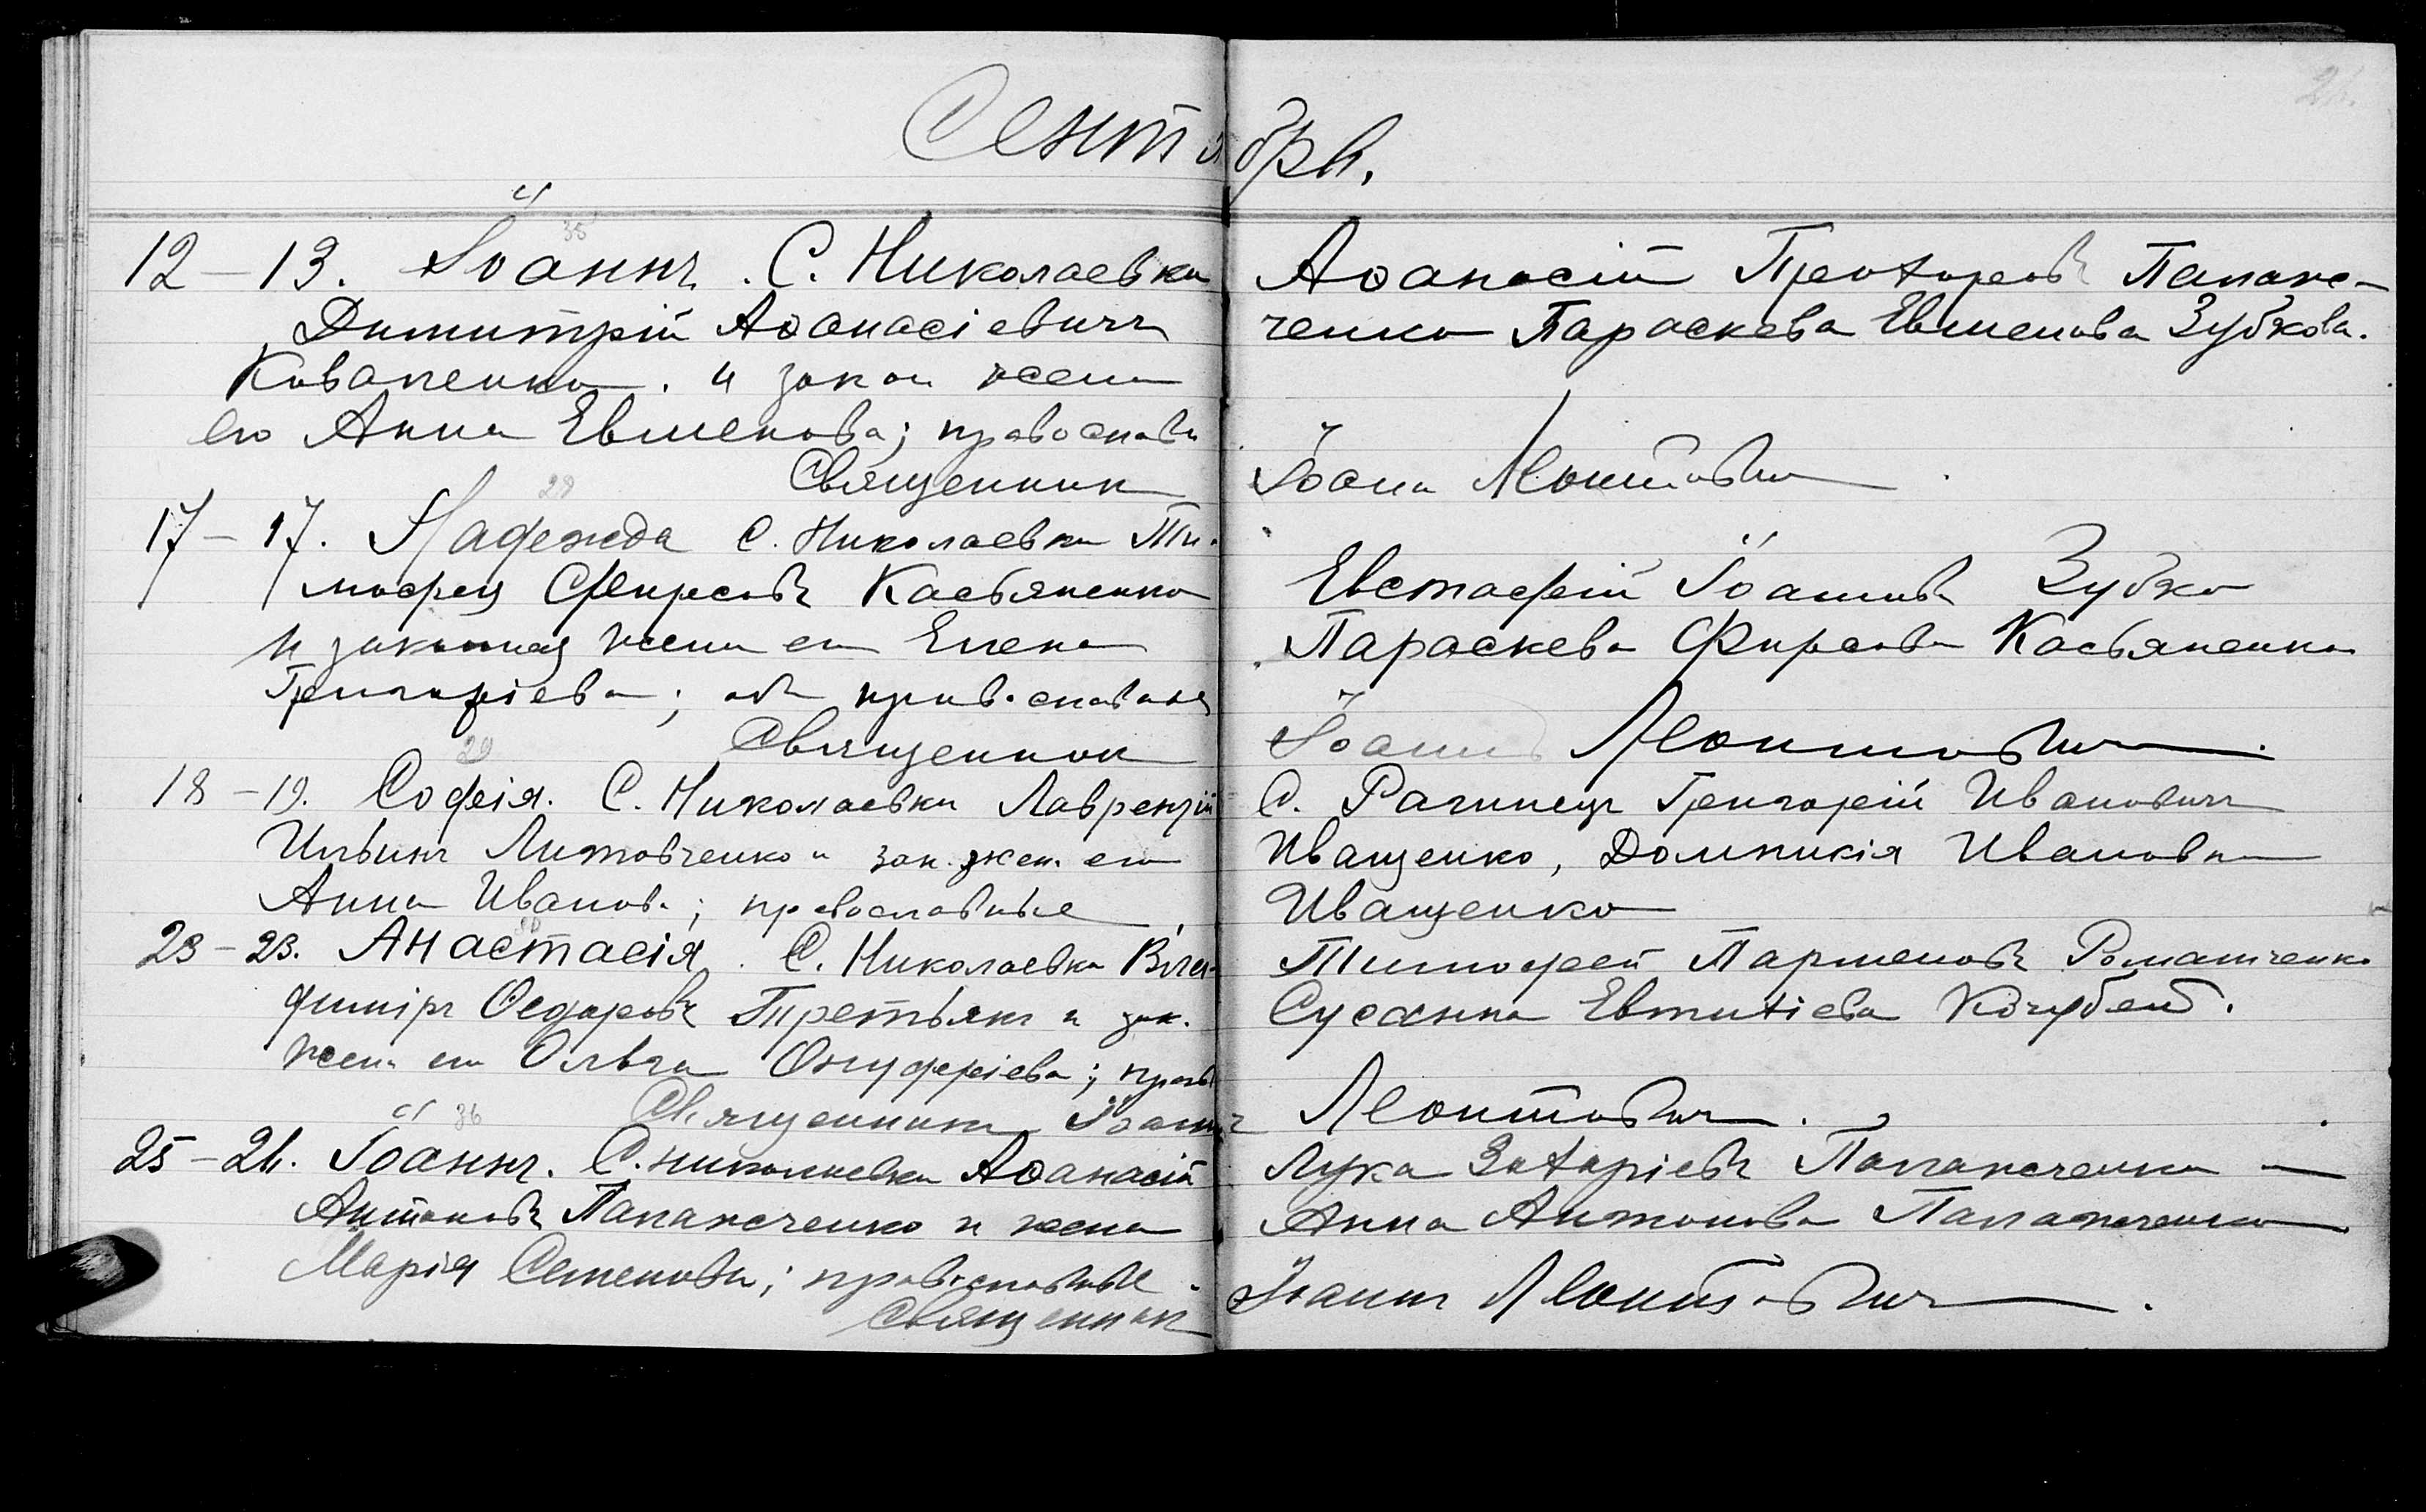 Сентябрь.
12–13. Іоаннъ. С. Николаевки
Димитрій Аѳанасіевичъ
Коваленко. и закон жена
его Анна Евменова; православн
Священник
17–17. Надежда С. Николаевки Ти-
мофей Фирсовъ Касьяненко
и законная жена его Елена
Григоріева; оба православные
Священник
18–19. Софія. С. Николаевки Лаврентій
Ильинъ Литовченко и зак. жен. его
Анна Иванов.; православные
23–23. Анастасія. С. Николаевки Вла-
димиръ Ѳедоровъ Третьякъ и зак.
жена его Ольга Онуфріева; прав
Священникъ Іоаннъ
25–26. Іоаннъ. С. Николаевки Аѳанасій
Антоновъ Папаксченко и жена
Марія Семенова; православные
Священник
Аѳанасій Папакс-
ченко Параскева Евменова Зубкова.
Іоанн Леонтович
Евстафій Іоаннов Зубко
Параскева Фирсова Касьяненко
Іоанн Леонтович.
С. Рогинецъ Григорій Ивановичъ
Иващенко, Домникія Иванова
Иващенко
Тимофей Парменовъ Ромащенко
Сусанна Евтихіева Кочубей.
Леонтович.
Лука Захаріевъ Папаксченко
Анна Антонова Папаксченко
Іоаннъ Леонтович.